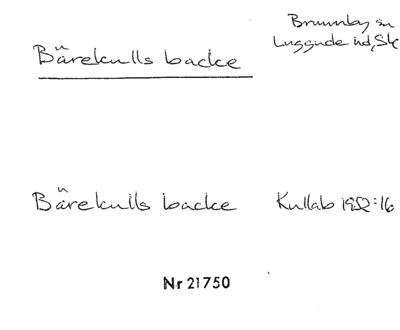 Brunnby sn
Luggude hd, Sk
Bärekulls backe
Bärekulls backe Kullab 1952:16
Nr 21750